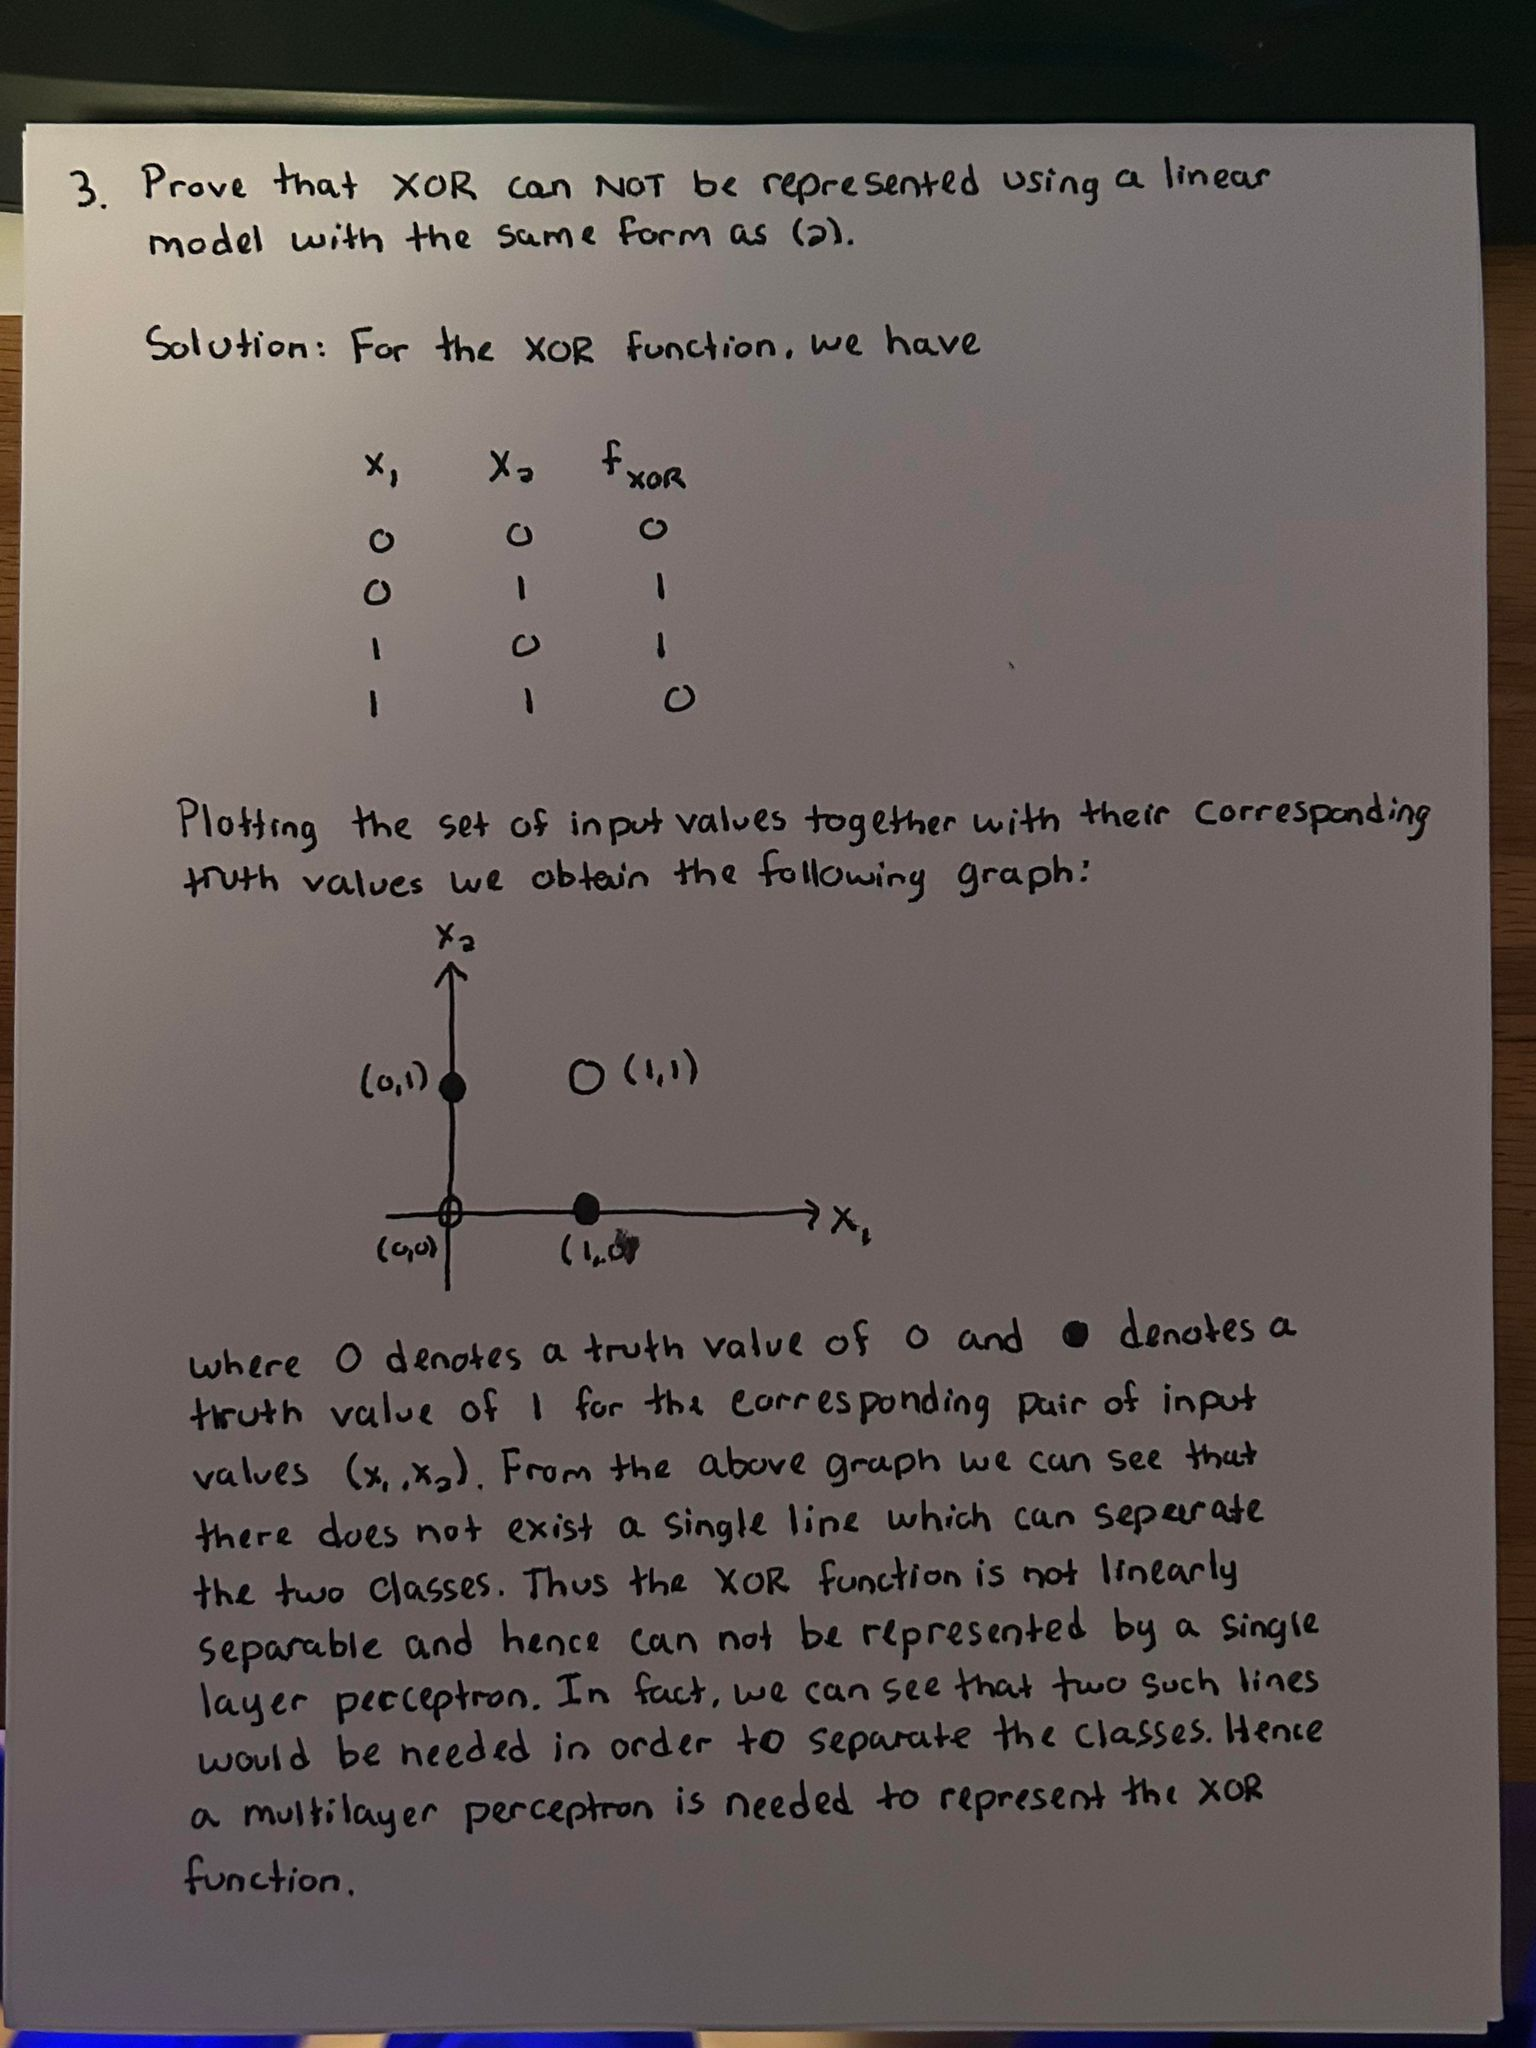 3. Prove that XOR can NOT be represented using a linear
model with the same form as (2).
Solution: For the XOR function, we have
x₁ x₂ f_XOR
0 0 0
0 1 1
1 0 1
1 1 0
Plotting the set of input values together with their corresponding
truth values we obtain the following graph:
x₂
(0,1) (1,1)
x₁
(0,0) (1,0)
where O denotes a truth value of 0 and ● denotes a
truth value of 1 for the corresponding pair of input
values (x₁,x₂). From the above graph we can see that
there does not exist a single line which can separate
the two classes. Thus the XOR function is not linearly
separable and hence can not be represented by a single
layer perceptron. In fact, we can see that two such lines
would be needed in order to separate the classes. Hence
a multilayer perceptron is needed to represent the XOR
function.